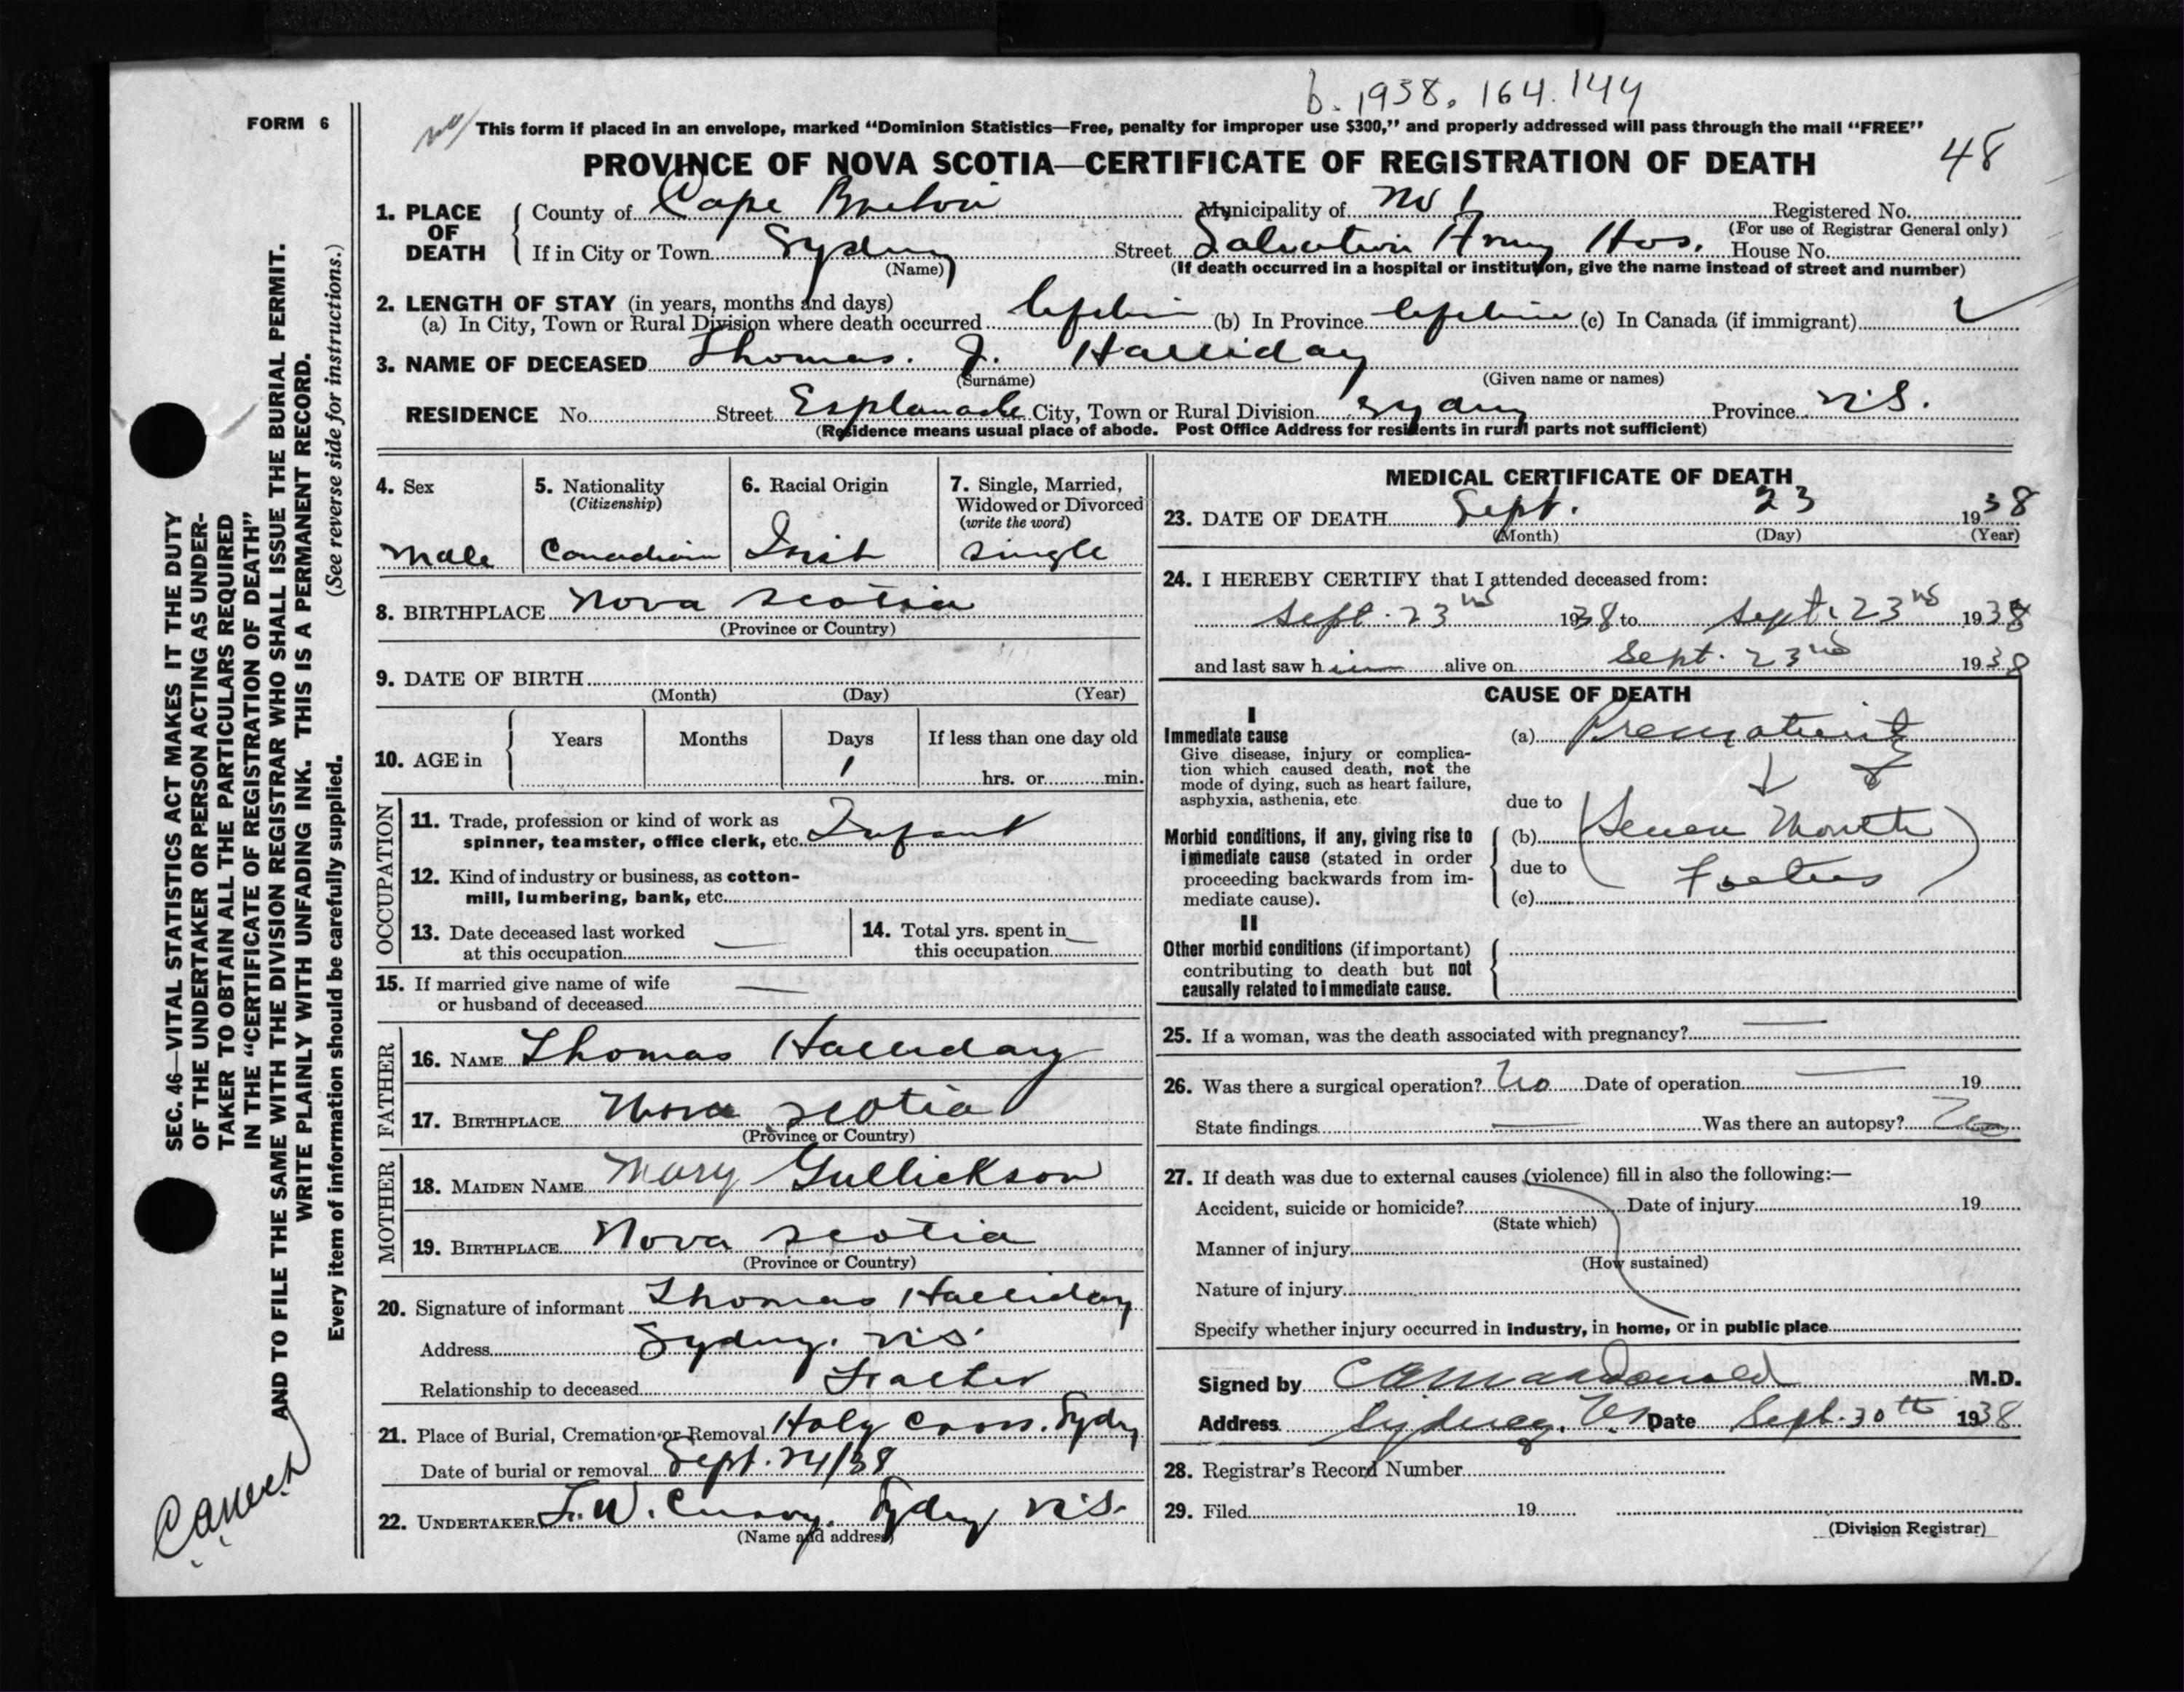 b. 1938. 164. 144
FORM 6
This form if placed in an envelope, marked “Dominion Statistics—Free, penalty for improper use $300,” and properly addressed will pass through the mail “FREE”
PROVINCE OF NOVA SCOTIA—CERTIFICATE OF REGISTRATION OF DEATH
48
1. PLACE OF DEATH
County of Cape Breton Municipality of No 1 Registered No.
(For use of Registrar General only)
If in City or Town Sydney Street Salvation Army Hos. House No.
(Name) (If death occurred in a hospital or institution, give the name instead of street and number)
2. LENGTH OF STAY (in years, months and days)
(a) In City, Town or Rural Division where death occurred lifetime (b) In Province lifetime (c) In Canada (if immigrant)
3. NAME OF DECEASED Thomas. J. Halliday
(Surname) (Given name or names)
RESIDENCE No. Street Esplanade City, Town or Rural Division Sydney Province N.S.
(Residence means usual place of abode. Post Office Address for residents in rural parts not sufficient)
4. Sex
male
5. Nationality
(Citizenship)
Canadian
6. Racial Origin
Irish
7. Single, Married,
Widowed or Divorced
(write the word)
single
8. BIRTHPLACE Nova Scotia
(Province or Country)
9. DATE OF BIRTH
(Month) (Day) (Year)
10. AGE in
Years Months Days If less than one day old
1 hrs. or min.
OCCUPATION
11. Trade, profession or kind of work as
spinner, teamster, office clerk, etc. Infant
12. Kind of industry or business, as cotton-
mill, lumbering, bank, etc.
13. Date deceased last worked
at this occupation —
14. Total yrs. spent in
this occupation —
15. If married give name of wife
or husband of deceased —
FATHER
16. NAME Thomas Halliday
17. BIRTHPLACE Nova Scotia
(Province or Country)
MOTHER
18. MAIDEN NAME Mary Gullickson
19. BIRTHPLACE Nova Scotia
(Province or Country)
20. Signature of informant Thomas Halliday
Address Sydney. N.S.
Relationship to deceased Father
21. Place of Burial, Cremation or Removal Holy Cross. Sydney
Date of burial or removal Sept. 24/38
22. UNDERTAKER F. W. Curry. Sydney N.S.
(Name and address)
MEDICAL CERTIFICATE OF DEATH
23. DATE OF DEATH Sept. 23 1938
(Month) (Day) (Year)
24. I HEREBY CERTIFY that I attended deceased from:
Sept. 23rd 1938 to Sept. 23rd 1938
and last saw him alive on Sept. 23rd 1938
CAUSE OF DEATH
I
Immediate cause
Give disease, injury or complica-
tion which caused death, not the
mode of dying, such as heart failure,
asphyxia, asthenia, etc.
(a) Prematurity
due to
Morbid conditions, if any, giving rise to
immediate cause (stated in order
proceeding backwards from im-
mediate cause).
(b) (Seven Month
due to Foetus)
(c)
II
Other morbid conditions (if important)
contributing to death but not
causally related to immediate cause.
25. If a woman, was the death associated with pregnancy? —
26. Was there a surgical operation? No Date of operation — 19
State findings — Was there an autopsy? No
27. If death was due to external causes (violence) fill in also the following:—
Accident, suicide or homicide? Date of injury 19
(State which)
Manner of injury
(How sustained)
Nature of injury
Specify whether injury occurred in industry, in home, or in public place
Signed by C A MacDonald M.D.
Address Sydney. N.S. Date Sept. 30th 1938
28. Registrar’s Record Number
29. Filed 19
(Division Registrar)
SEC. 46—VITAL STATISTICS ACT MAKES IT THE DUTY
OF THE UNDERTAKER OR PERSON ACTING AS UNDER-
TAKER TO OBTAIN ALL THE PARTICULARS REQUIRED
IN THE “CERTIFICATE OF REGISTRATION OF DEATH”
AND TO FILE THE SAME WITH THE DIVISION REGISTRAR WHO SHALL ISSUE THE BURIAL PERMIT.
WRITE PLAINLY WITH UNFADING INK. THIS IS A PERMANENT RECORD.
Every item of information should be carefully supplied. (See reverse side for instructions.)